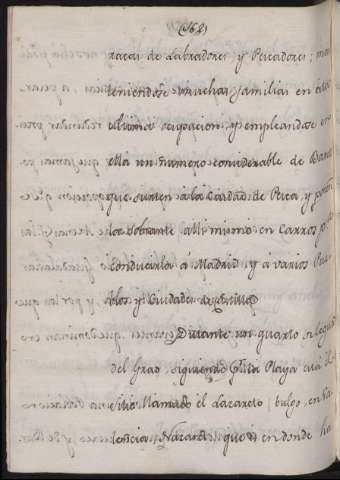 (162)
racas de Labradores y Pescadores; man
teniendose muchas familias en esta
ultima ocupacion, y empleandose en
ella un numero considerable de Barcos
que surten a la Ciudad de Pesca, y ponen
lo sobrante alli mismo en Carros para
conducirla á Madrid y á varios Pue
blos y Ciudades de Castilla
Distante un quarto de legua
del Grao, siguiendo esta Playa está el
sitio llamado el Lazareto (vulgo, en Va
lencia, Nazaret) que es en donde ha